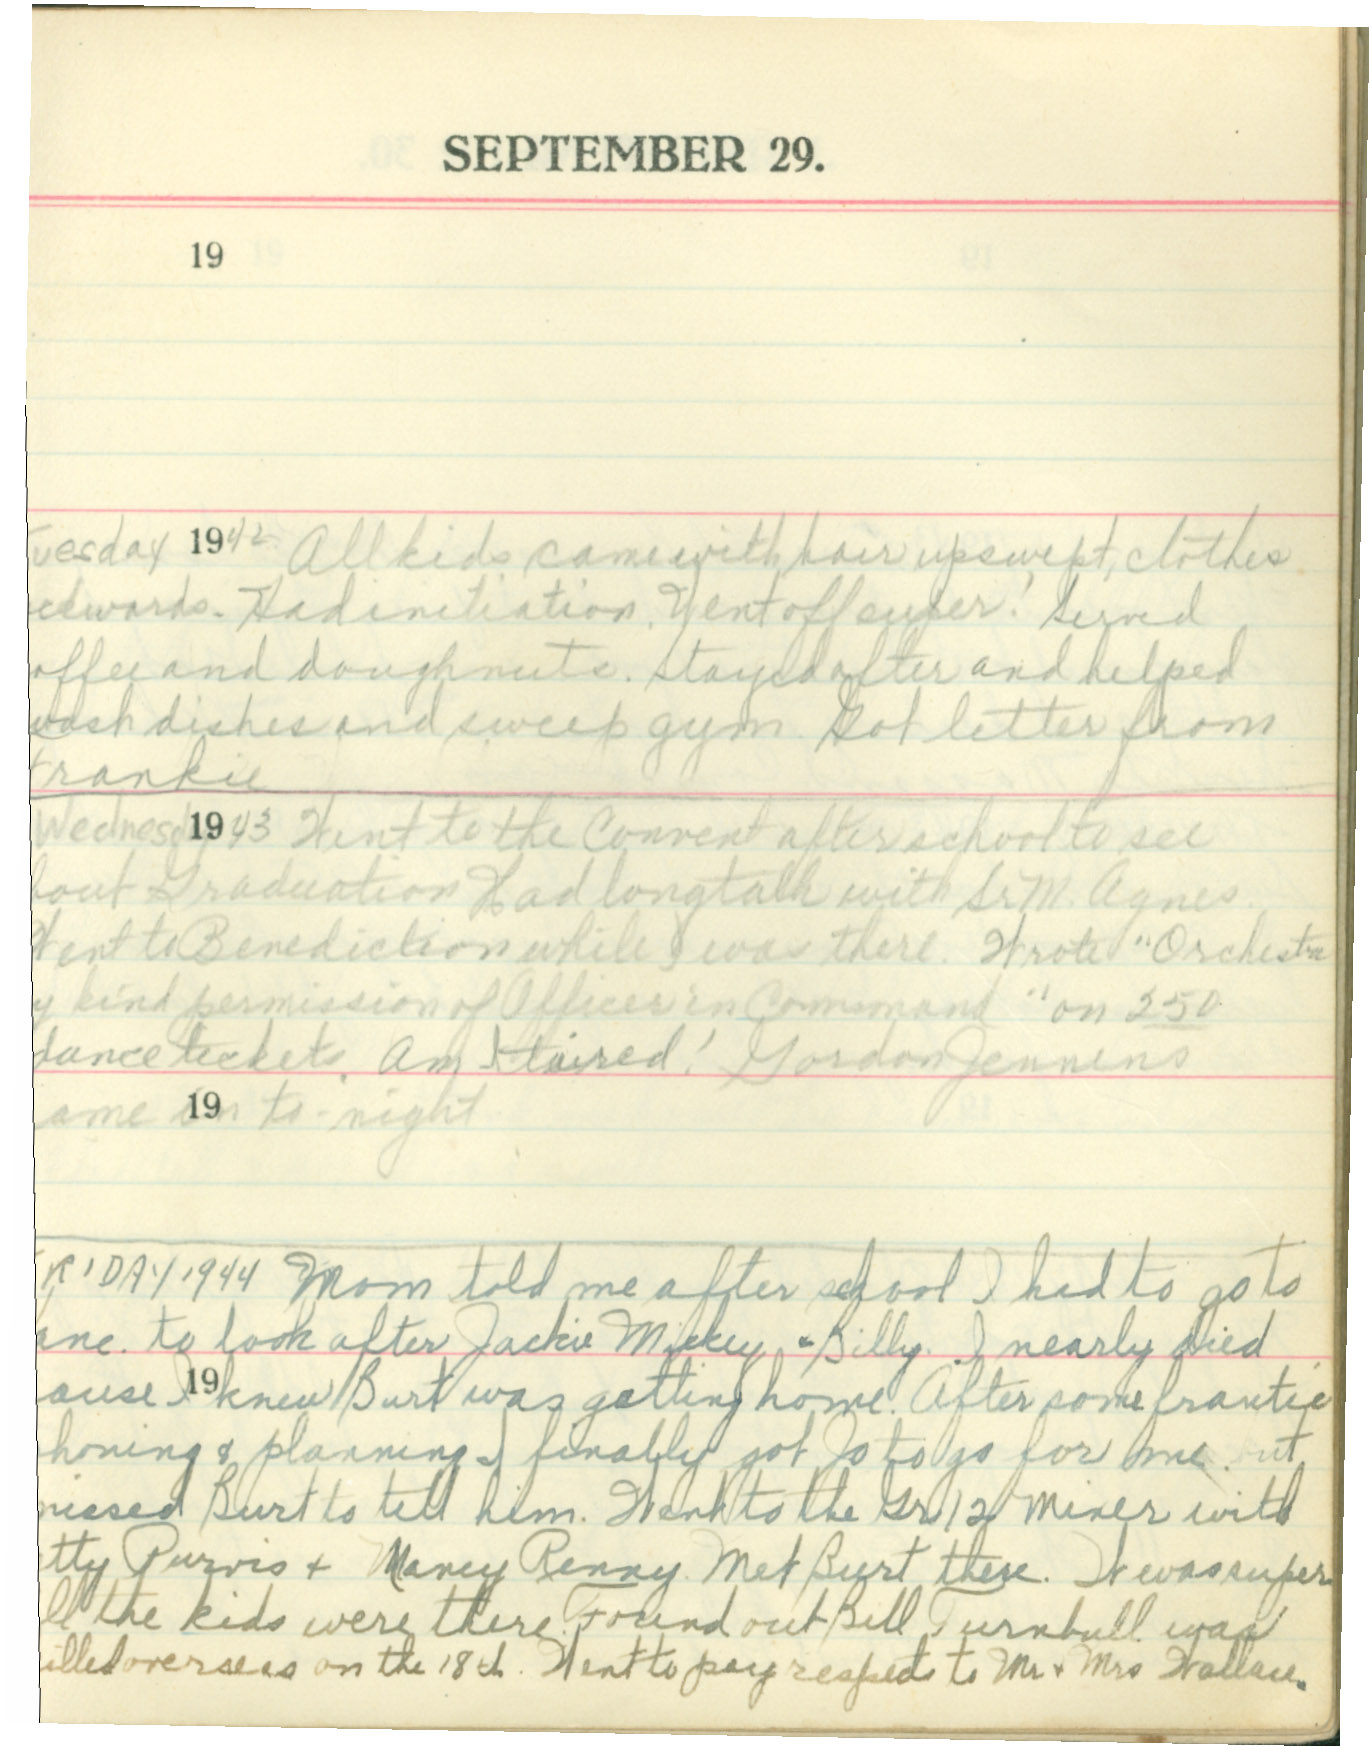 SEPTEMBER 29.
19
uesday 1942 All kids came with hair upswept, clothes
ckwards. Had initiation. Went off super! Served
offee and doughnuts. Stayed after and helped
wash dishes and sweep gym. Got letter from
Frankie
Wednesd 1943 Went to the Convent after school to see
bout Graduation Had long talk with Sr M. Agnes.
Went to Benediction while I was there. Wrote "Orchestra
y kind permission of Officer in Command" on 250
dance tickets. Am I tired! Gordon Jennens
ame in to-night
19
FRIDAY 1944 Mom told me after school I had to go to
ane. to look after Jackie Mickey & Billy. I nearly died
ause I knew Burt was getting home. After some frantic
19
honing & planning I finally got Jo to go for me but
missed Burt to tell him. Went to the Gr 12 Mixer with
etty Purvis + Nancy Renny. Met Burt there. It was super
ll the kids were there. Found out Bill Turnbull was
illed overseas on the 18th. Went to pay respects to Mr + Mrs Wallace.